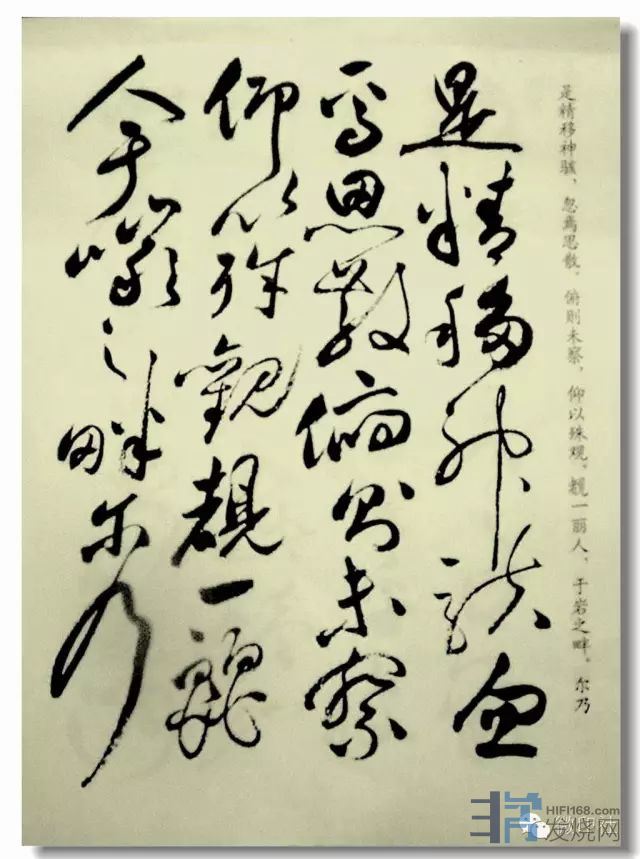 是精移神骇，忽焉思散。俯则未察，仰以殊观。覩一丽人，于岩之畔。尔乃
是精移神駭忽
焉思散俯則未察
仰以殊觀覩一麗
人于巖之畔尔乃
HIFI168.com
发烧网